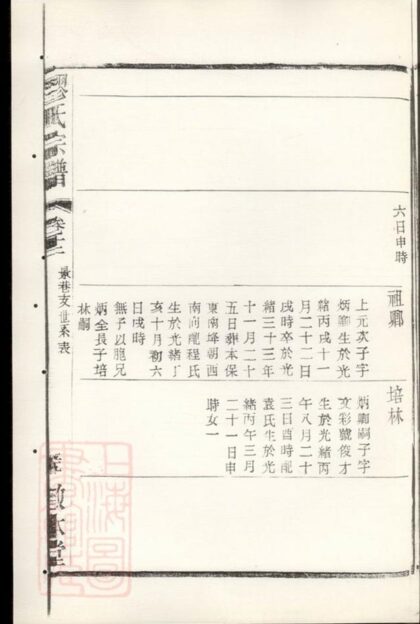 六日申時
祖卿
上元次子字
炳卿生於光
緒丙戌十一
月二十二日
戌時卒於光
緒三十三年
十一月二十
五日葬本保
東南埄朝西
南向配程氏
生於光緒丁
亥十月初六
日戌時
無子以胞兄
炳全長子培
林嗣
培林
炳卿嗣子字
文彩號俊才
生於光緒丙
午八月二十
三日酉時配
袁氏生於光
緒丙午三月
二十一日申
時女一
氏宗譜
卷二十二
巷支世系表
敬本堂
上海圖